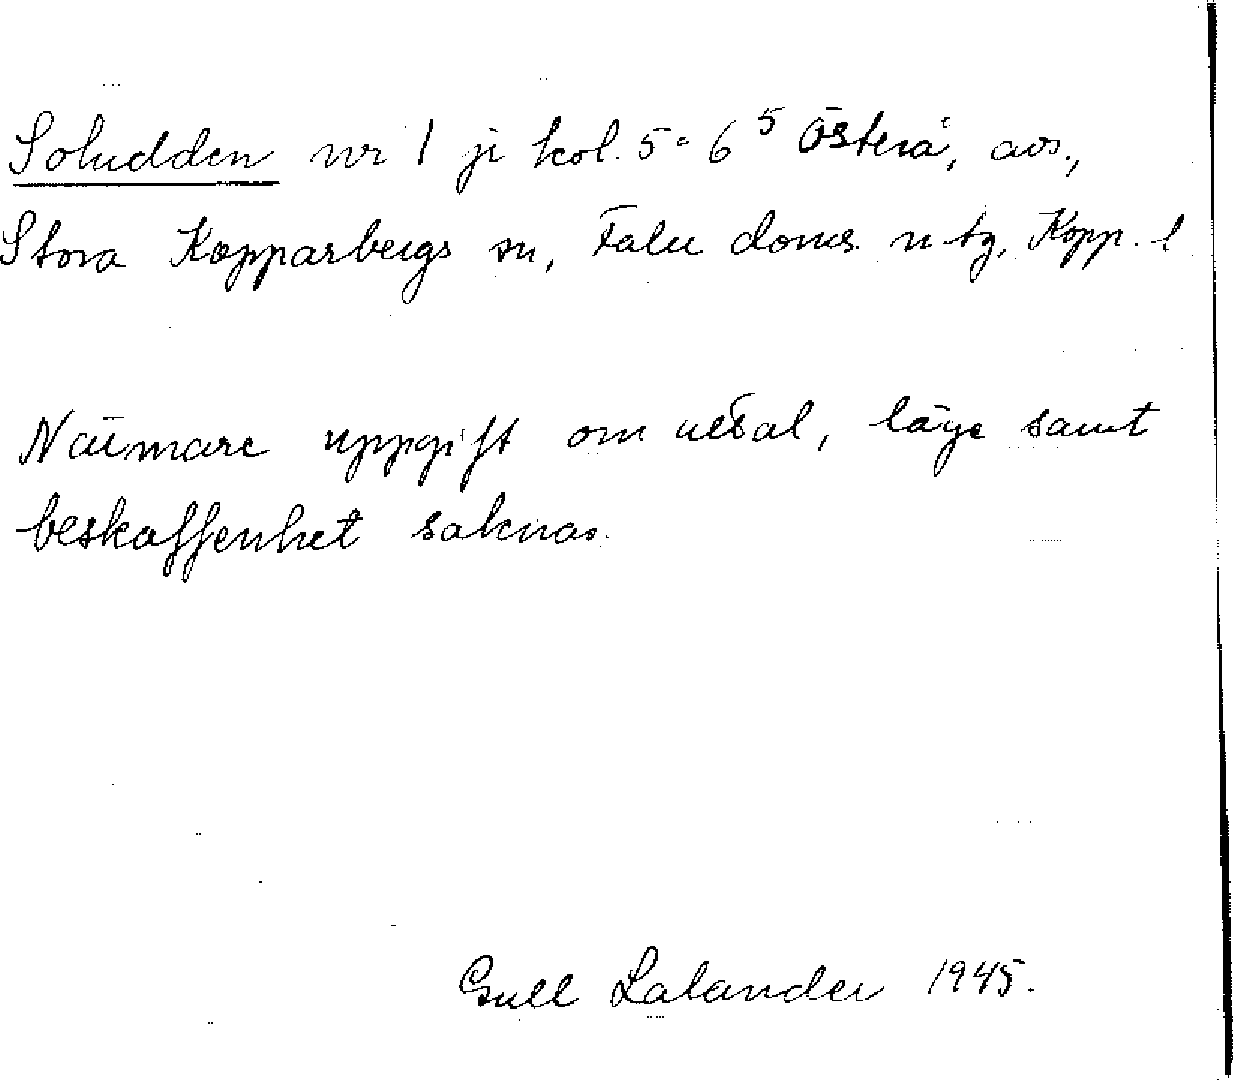 Soludden nr 1 ji kol. 5 - 6⁵ Österå, avs.,
Stora Kopparbergs sn, Falu doms. n tg, Kopp. l
Närmare uppgift om antal, läge samt
beskaffenhet saknas.
Gull Lalander 1945.